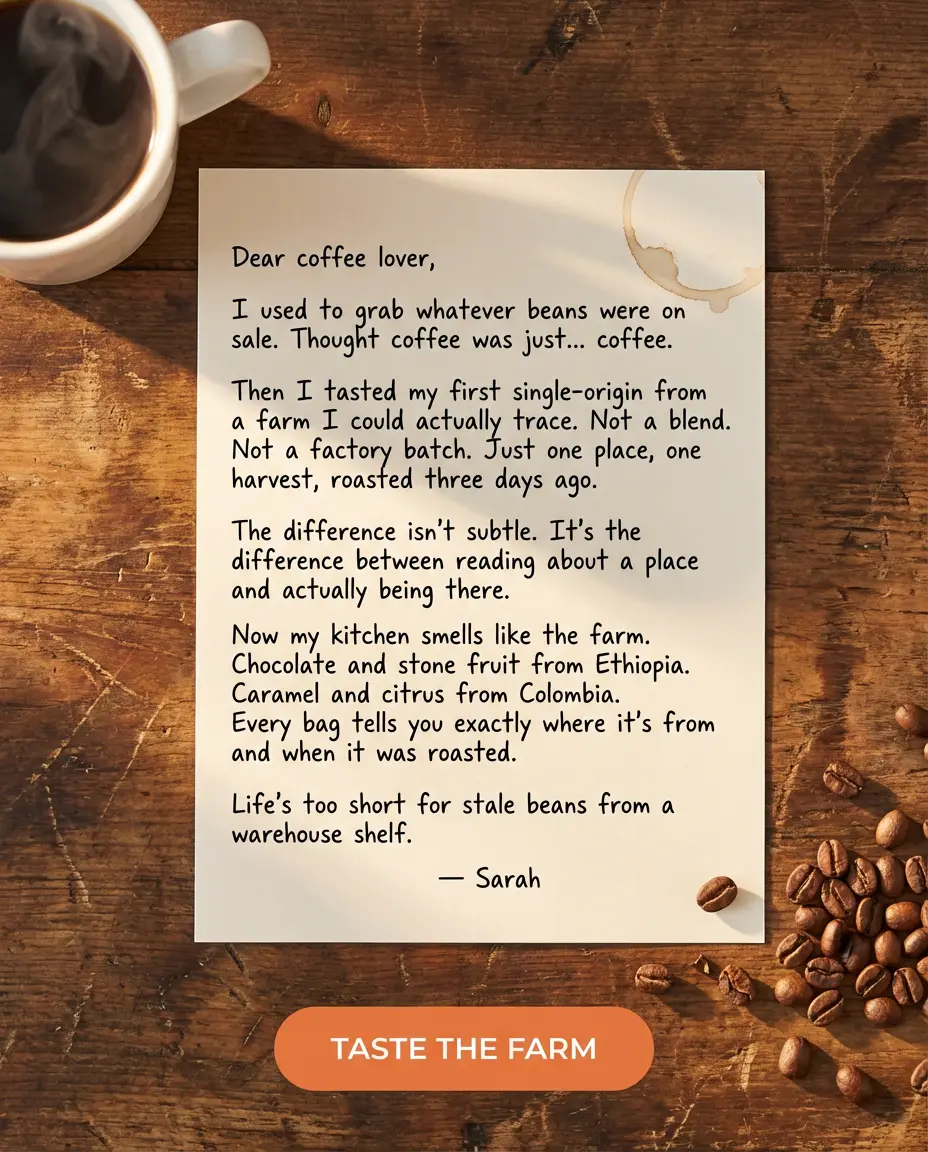 Dear coffee lover,
I used to grab whatever beans were on
sale. Thought coffee was just... coffee.
Then I tasted my first single-origin from
a farm I could actually trace. Not a blend.
Not a factory batch. Just one place, one
harvest, roasted three days ago.
The difference isn't subtle. It's the
difference between reading about a place
and actually being there.
Now my kitchen smells like the farm.
Chocolate and stone fruit from Ethiopia.
Caramel and citrus from Colombia.
Every bag tells you exactly where it's from
and when it was roasted.
Life's too short for stale beans from a
warehouse shelf.
— Sarah
TASTE THE FARM